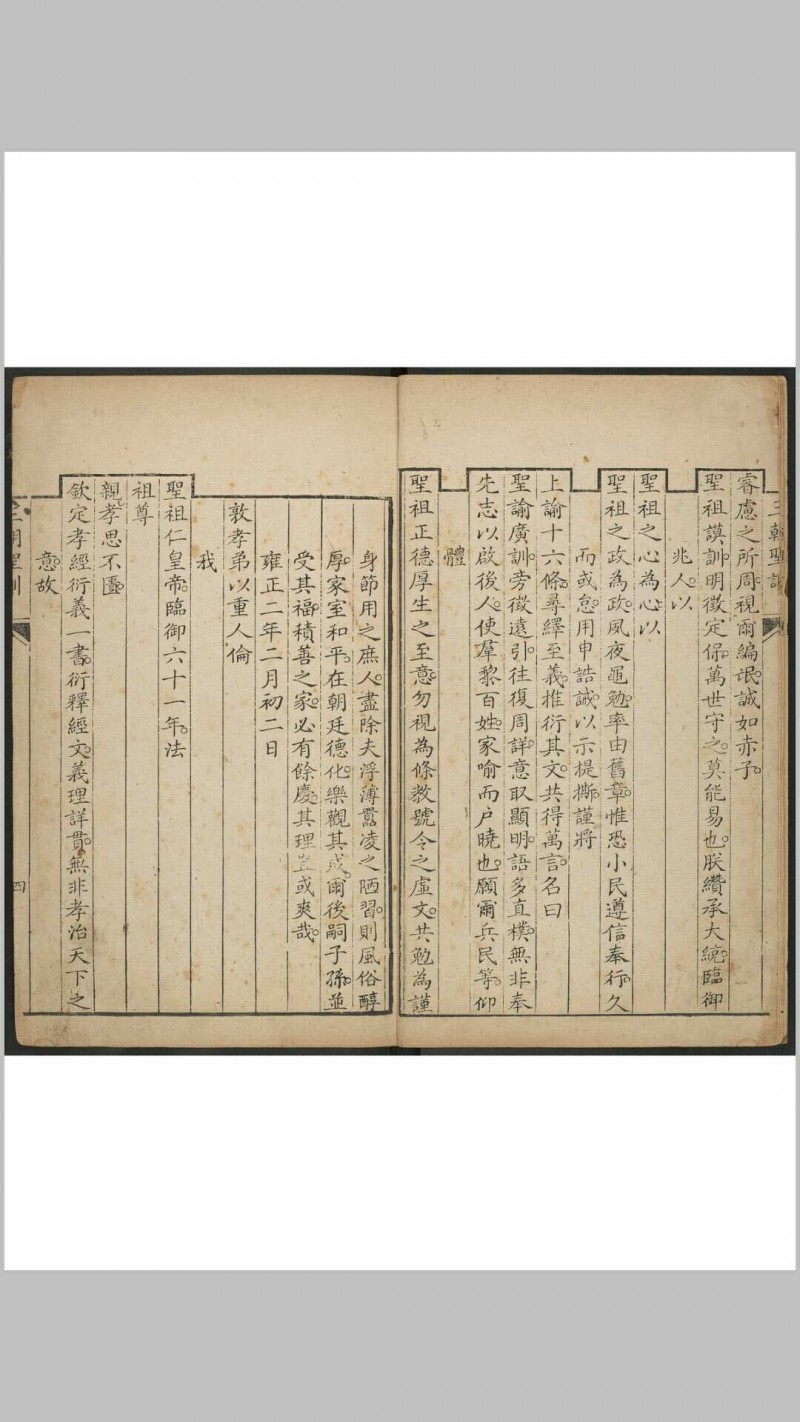 睿慮之所周視爾編氓誠如赤子
聖祖謨訓明徵定保萬世守之莫能易也朕纘承大統臨御
兆人以
聖祖之心為心以
聖祖之政為政夙夜黽勉率由舊章惟恐小民遵信奉行久
而或怠用申誥誡以示提撕謹將
上諭十六條尋繹至義推衍其文共得萬言名曰
聖諭廣訓旁徵遠引往復周詳意取顯明語多直樸無非奉
先志以啟後人使羣黎百姓家喻而户曉也願爾兵民等仰
體
聖祖正德厚生之至意勿視為條教號令之虛文共勉為謹
身節用之庶人盡除夫浮薄囂凌之陋習則風俗醇
厚家室和平在朝廷德化樂觀其成爾後嗣子孫並
受其福積善之家必有餘慶其理豈或爽哉
雍正二年二月初二日
敦孝弟以重人倫
我
聖祖仁皇帝臨御六十一年法
祖尊
親孝思不匱
欽定孝經衍義一書衍釋經文義理詳貫無非孝治天下之
意故
四